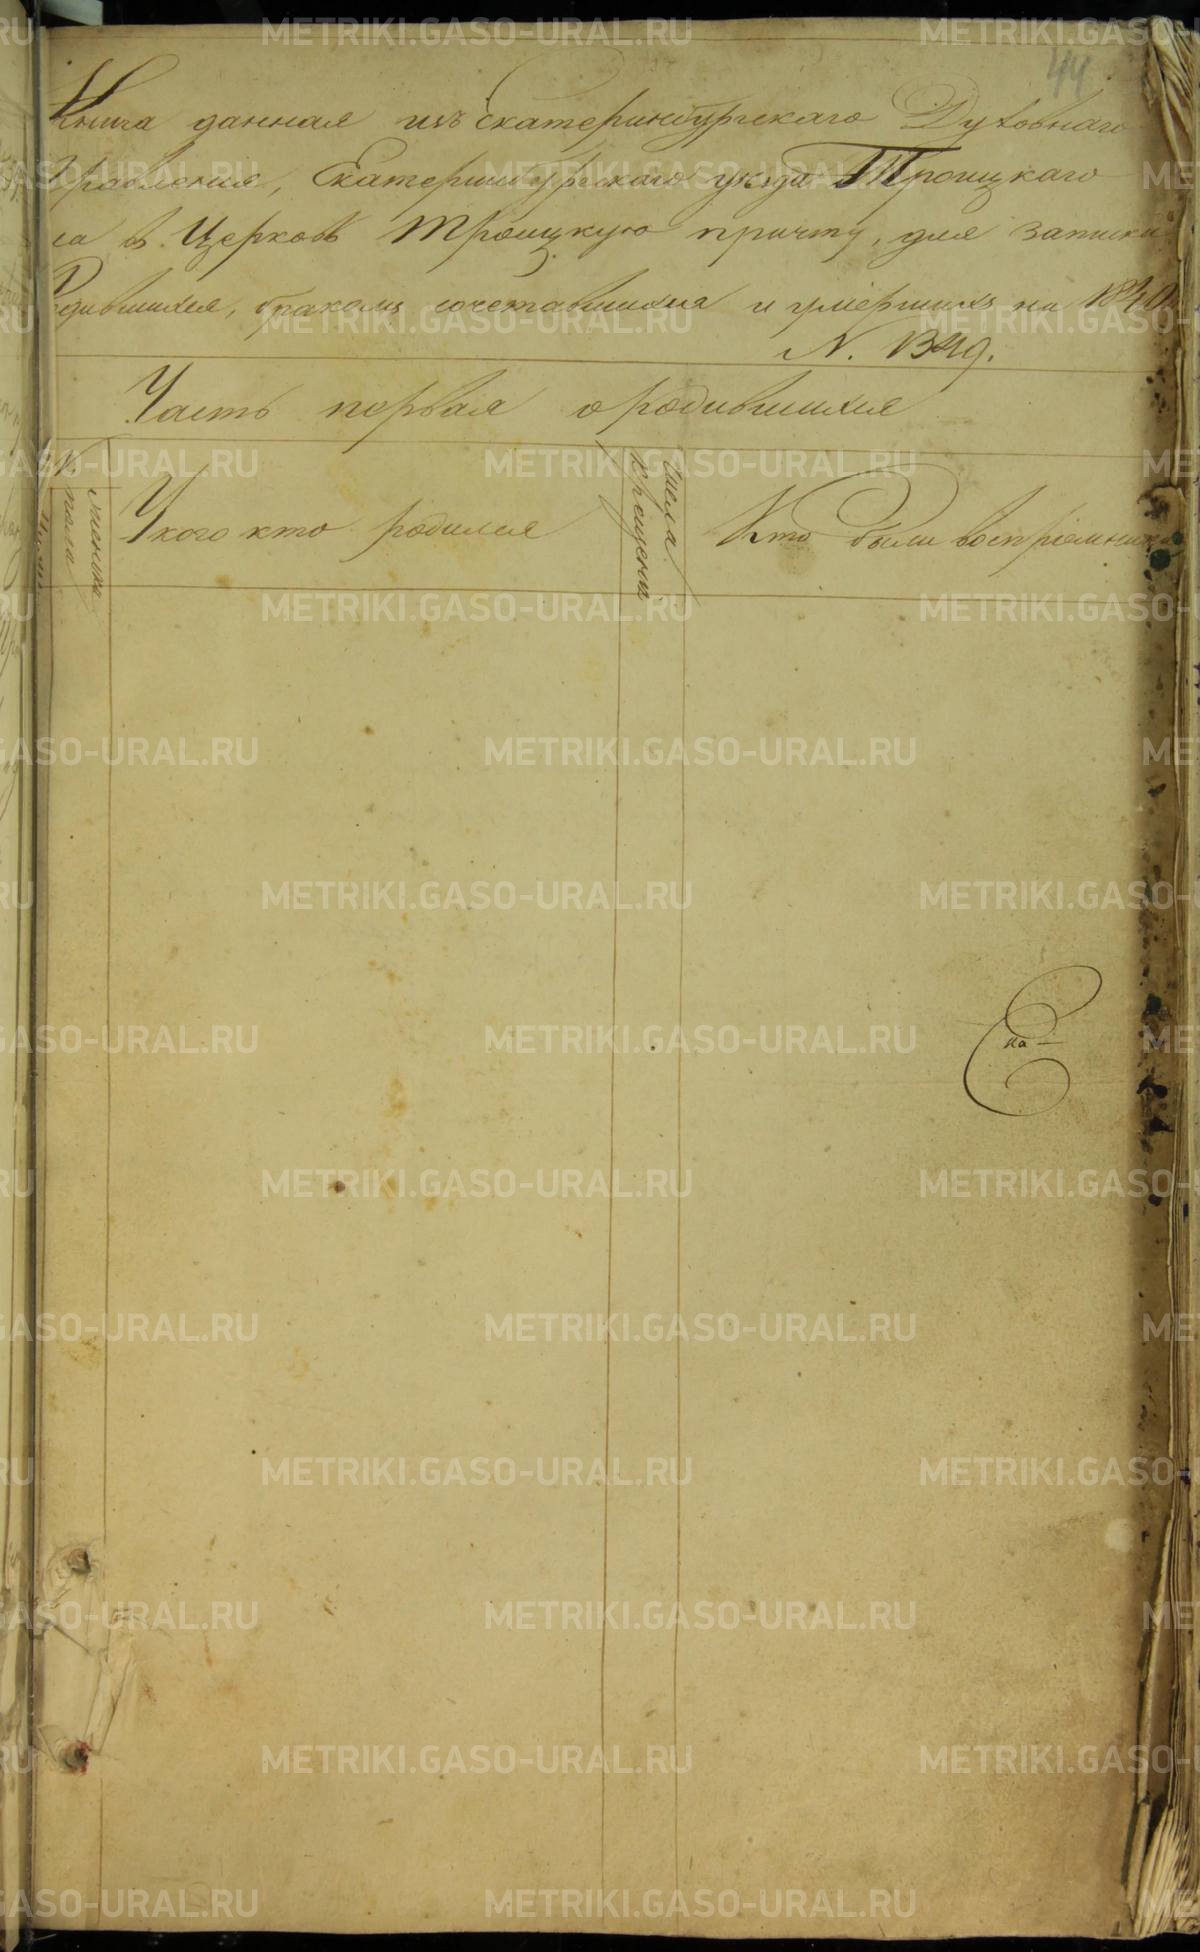 44
Книга данная изъ Екатеринбургскаго Духовнаго
Правления, Екатеринбургскаго уезда Троицкаго
ла въ Церковь Троицкую причту, для записки
Родившихся, бракомъ сочетавшихся и умершихъ на 1840
N. 1349.
Часть первая о родившихся
N.
пола
женска
У кого кто родился
Числа
крещения
Кто были восприемники
ка-
METRIKI.GASO-URAL.RU